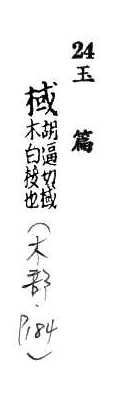 24玉篇
棫 胡逼切棫
木白桵也
（木部·P184）